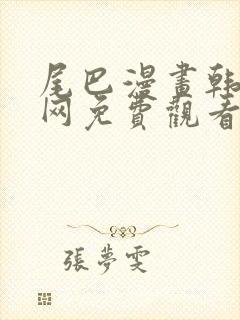 尾巴漫畫韩
网免費觀看
張夢雯